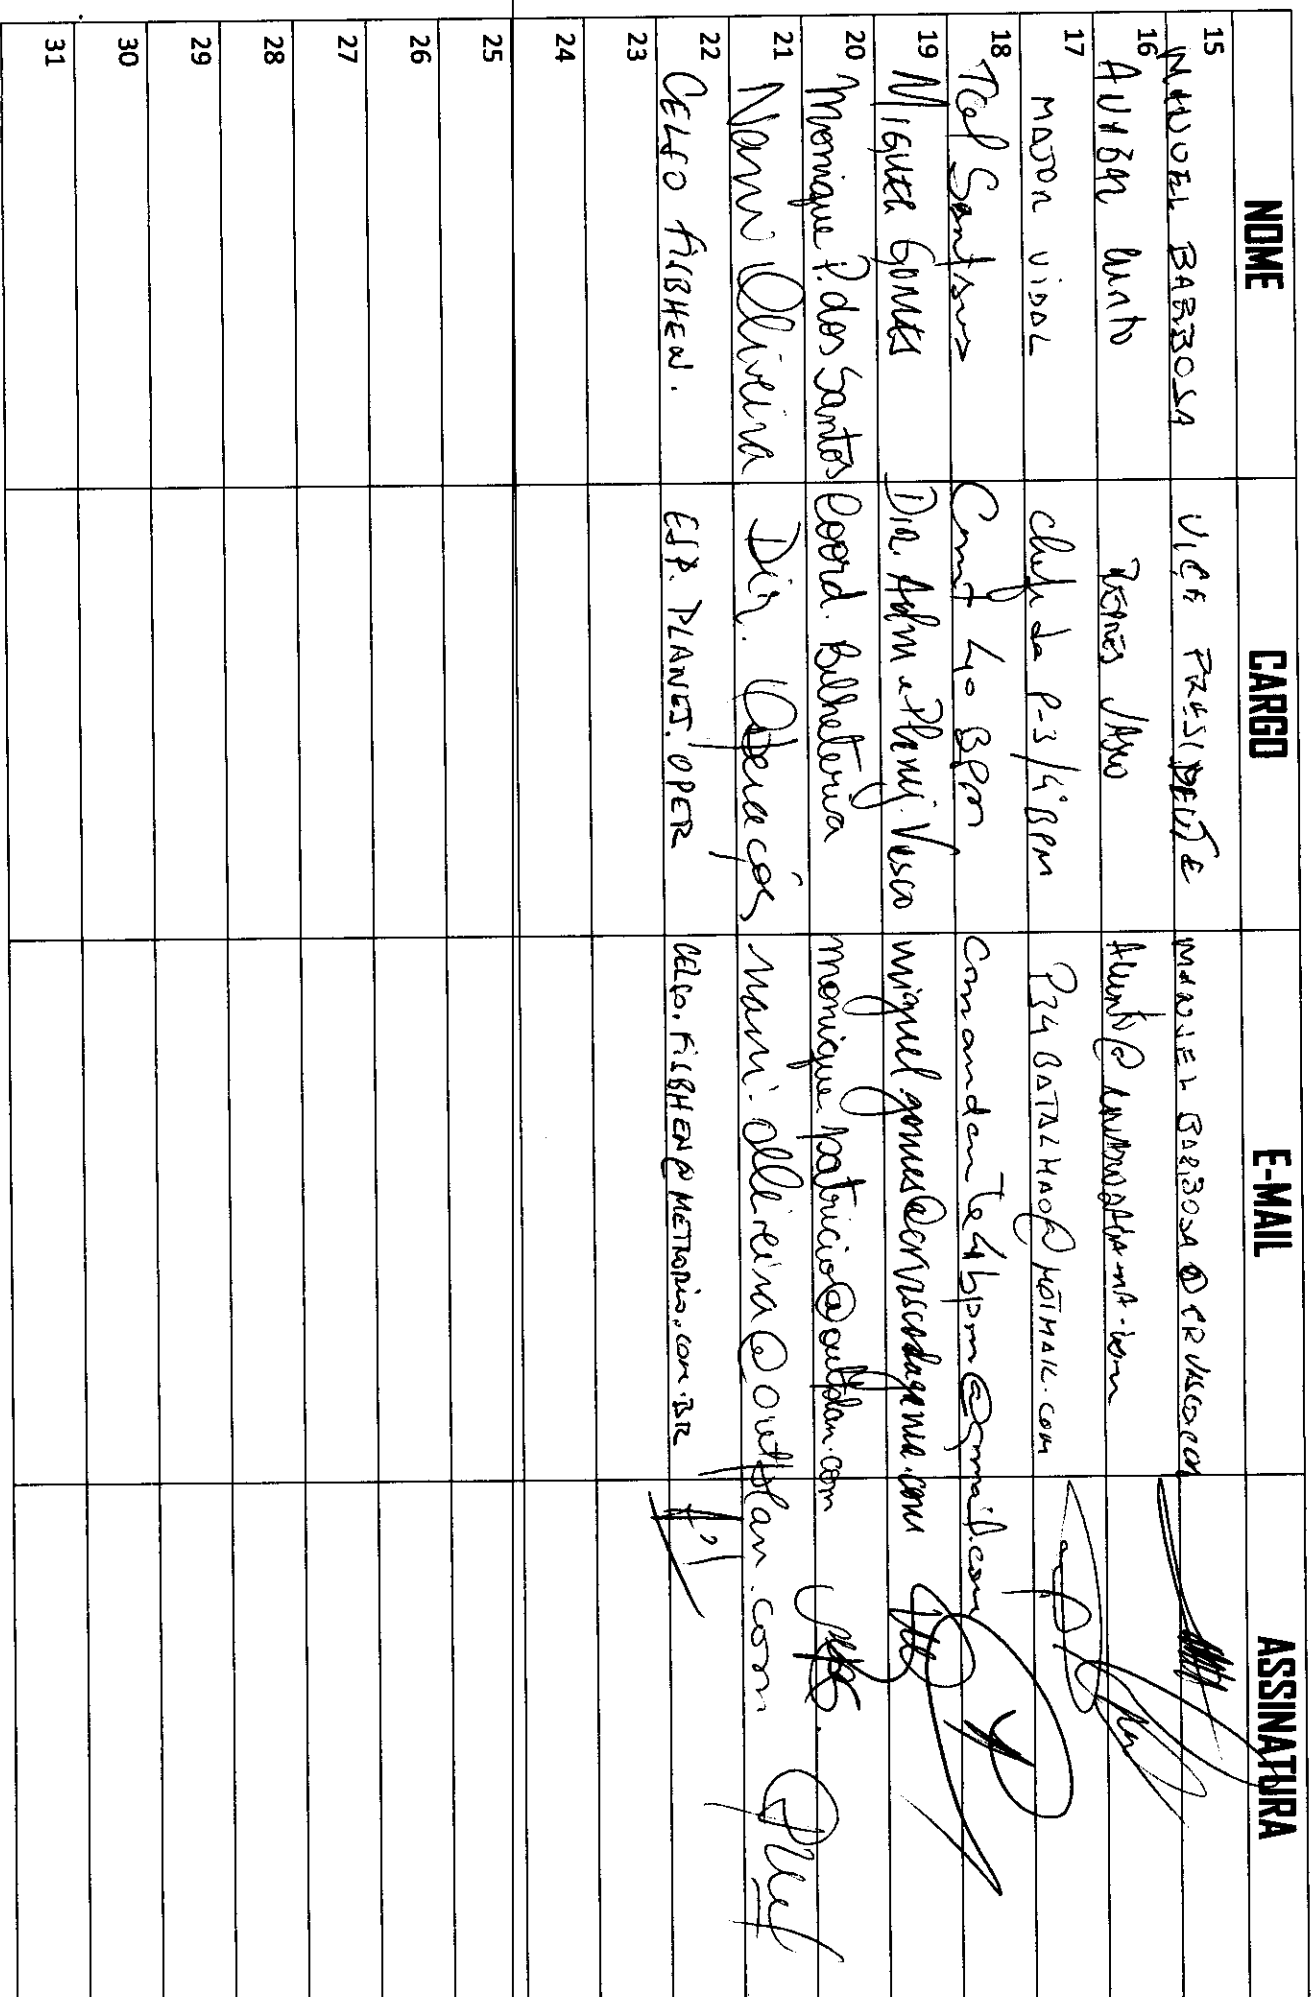 NOME CARGO E-MAIL ASSINATURA
15 MANUEL BARBOSA VICE PRESIDENTE MANUEL BARBOSA@CRVASCO.COM
16
17 MAJOR VIDAL chefe da P-3/4ºBPM P34BATALHAO@HOTMAIL.COM
18 TCel Santos Cmt 4º BPM comandante4bpm@gmail.com
19 MIGUEL GOMES Dir. Adm e Planej. Vasco miguel.gomes@crvascodagama.com
20 Monique P. dos Santos Coord. Bilheteria monique.patricio@outplan.com
21 Nami Oliveira Dir. Operações nami.olliveira@outplan.com
22 CELSO FISBHEN. ESP. PLANEJ. OPER CELSO.FISBHEN@METRORIO.COM.BR
23
24
25
26
27
28
29
30
31